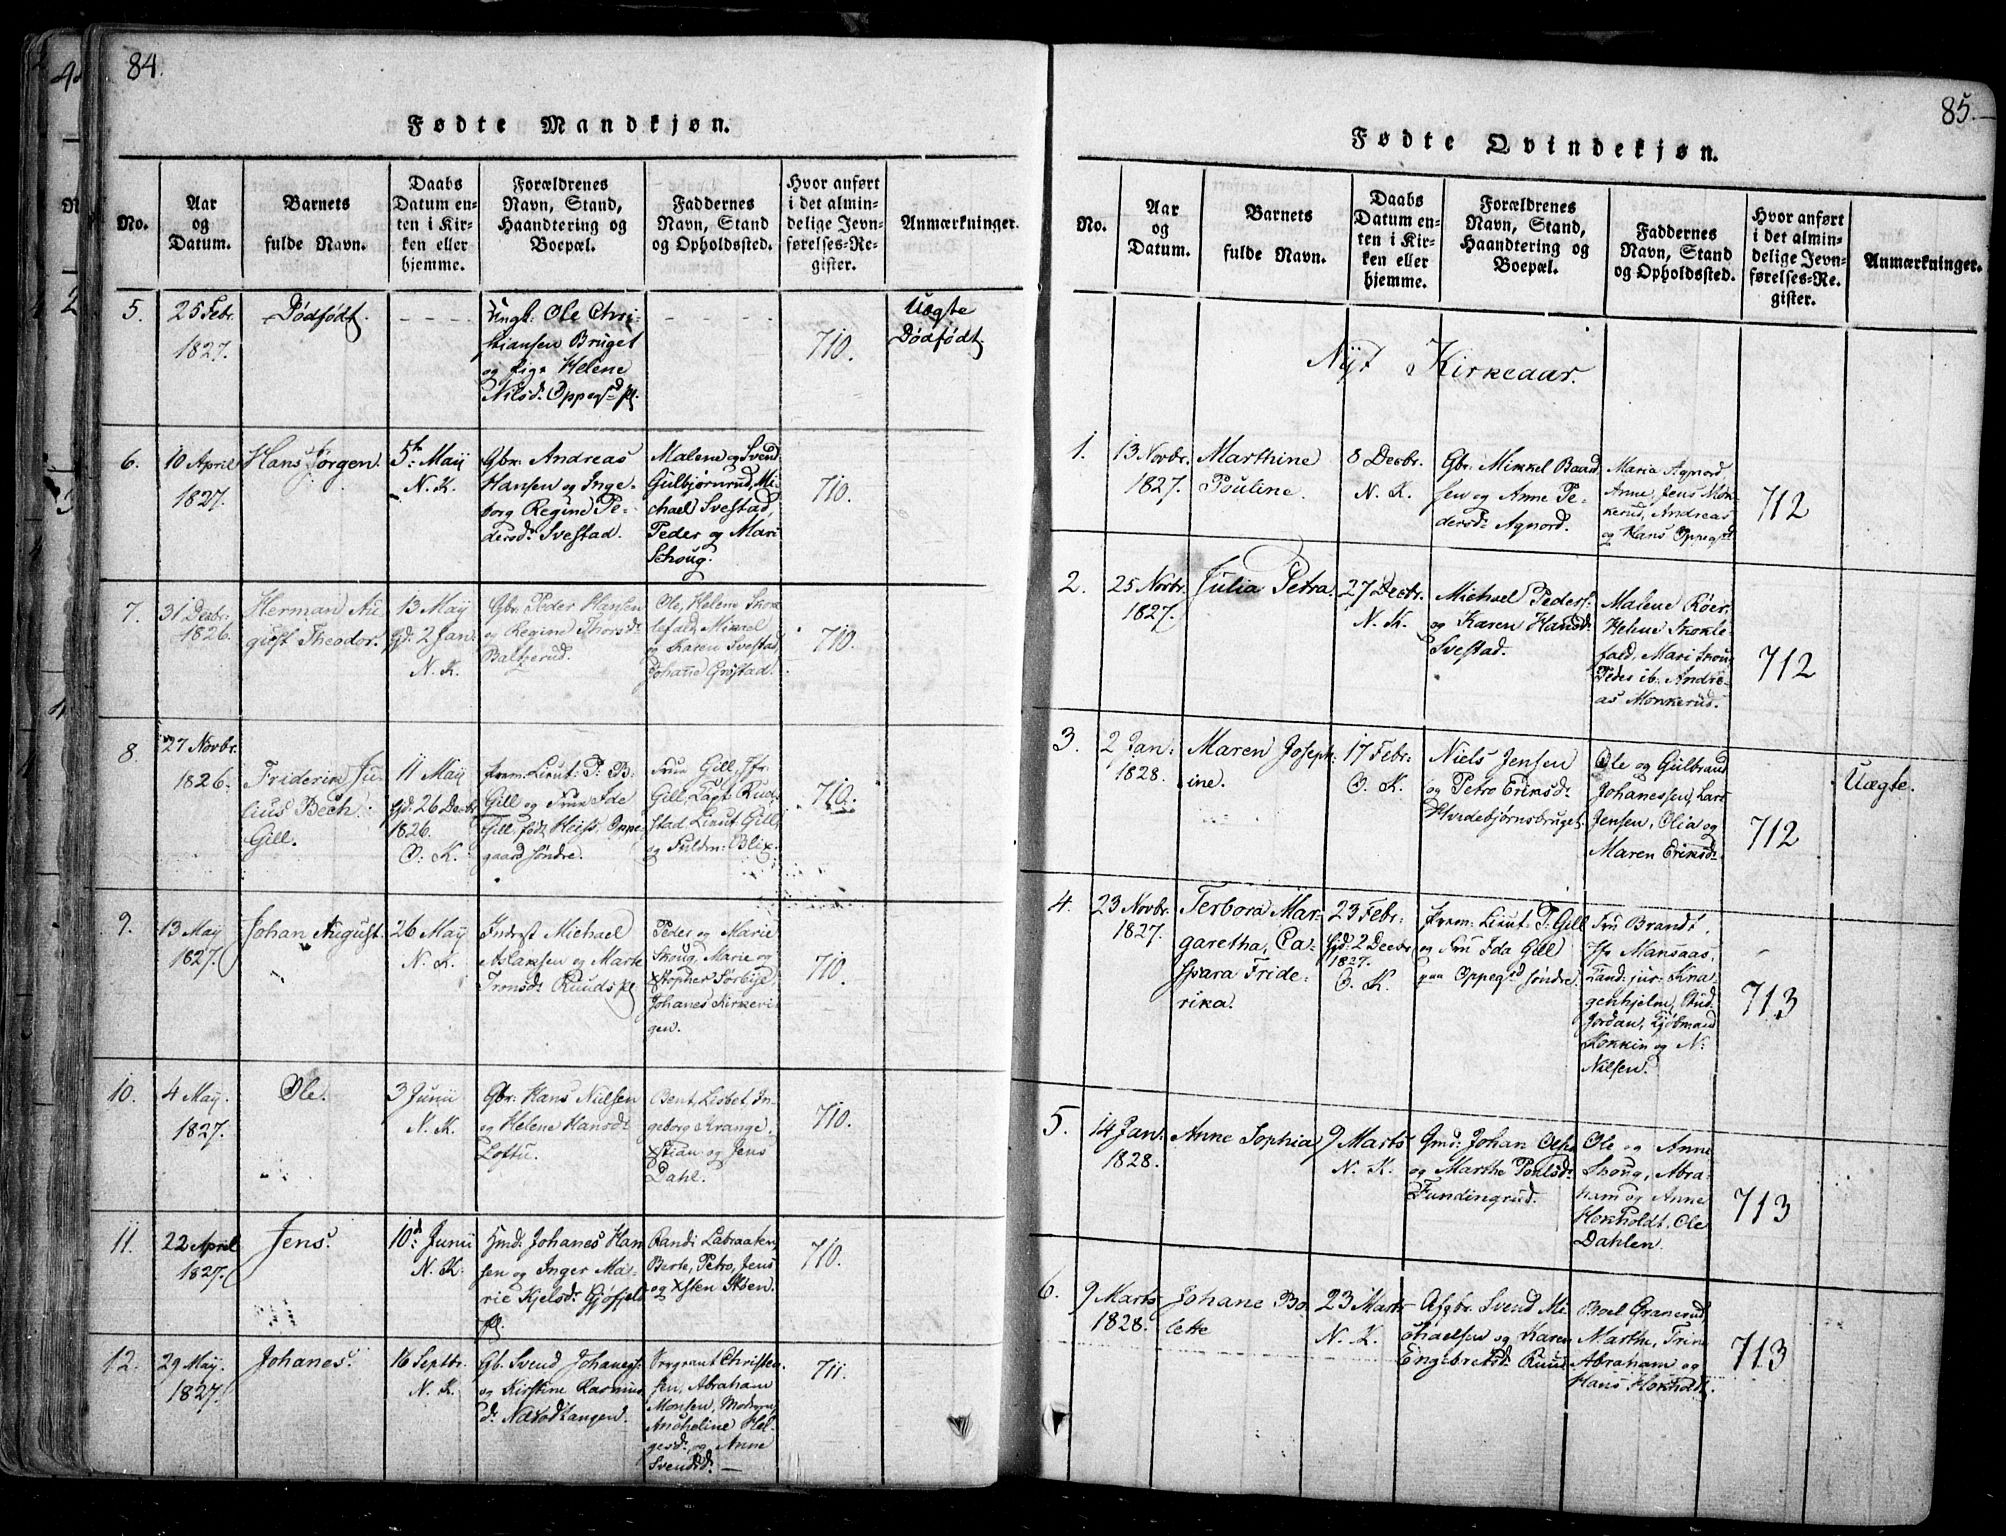 84.
Fødte Mandkjøn.
No.
Aar
og
Datum.
Barnets
fulde Navn.
Daabs
Datum en-
ten i Kir-
ken eller
hjemme.
Forældrenes
Navn, Stand,
Haandtering og
Boepæl.
Faddernes
Navn, Stand
og Opholdssted.
Hvor anført
i det almin-
delige Jevn-
førelses-Re-
gister.
Anmærkninger.
5.
25 Febr.
1827.
Dødfødt.
Ungk: Ole Chri-
stiansen Bruget
og Pige Helene
Nilsd: Oppegrd pl.
710.
Uægte
Dødfødt.
6.
10 April
1827.
Hans Jørgen.
5te May
N. K.
Gbr: Andreas
Hansen og Inge-
borg Regine Pe-
dersd: Svestad.
Malene og Svend
Gulbjørnrud, Mi-
chael Svestad,
Peder og Mari
Schoug.
710.
7.
31 Decbr.
1826.
Herman Au-
gust Theodor.
13 May
Gd: 2 Jan.
N. K.
Gbr: Peder Hansen
og Regine Thorsd:
Baltzerud.
Ole, Helene Skok-
lefald, Mikkel
og Karen Svestad,
Johane Grøstad.
710.
8.
27 Novbr.
1826.
Friderik Ju-
lius Bech
Gill.
11 May
Gd: 26 Decbr
1826.
O: K.
Prem: Lieut: P: B:
Gill og Frue Ide
Gill, fød Heiss, Oppe-
gaard søndre.
Frue Gill, Jfr
Gill, Capt: Rud-
stad, Lieut: Gill,
og Fuldm: Blix.
710.
9.
13 May
1827.
Johan August.
26 May
N. K.
Inderst Michael
Aslaksen og Marte
Tronsd: Ruuds pl
Peder og Marie
Skoug, Marie og
Xstopher Sørbye,
Johanes Kirkevi-
gen.
710
10.
4 May.
1827.
Ole.
3 Junii
N. K.
Gbr: Hans Nielsen
og Helene Hansd:
Loftu.
Bent, Lisbet, In-
geborg Krange,
Xstian og Jens
Dahl.
710.
11.
22 April
1827.
Jens.
10d: Junii
N. K.
Hmd: Johanes Han-
sen og Inger Ma-
rie Kjelsd: Gjøfjeld
pl.
Randi Labraaten,
Berte, Petro, Jens
og Xsten Støen.
710.
12.
29 May.
1827.
Johanes.
16 Septbr.
N. K.
Gb. Svend Johanes:
og Kirstine Rasmus
d: Næsodtangen.
Sergeant Christen-
sen, Abraham
Monsen, Madam
Ancheline Hel-
gesd: og Anne
Svendsd: —
711.
85.
Fødte Qvindekjøn.
No.
Aar
og
Datum.
Barnets
fulde Navn.
Daabs
Datum en-
ten i Kir-
ken eller
hjemme.
Forældrenes
Navn, Stand,
Haandtering og
Boepæl.
Faddernes
Navn, Stand
og Opholdssted.
Hvor anført
i det almin-
delige Jevn-
førelses-Re-
gister.
Anmærkninger.
Nyt Kirkeaar.
1.
13 Novbr.
1827.
Marthine
Pouline.
8 Decbr.
N. K.
Gbr. Mikkel Baard-
sen og Anne Pe-
dersd: Agnord.
Maria Agnord
Anne, Jens Mon-
kerud, Andreas
og Hans Oppegrd
712
2.
25 Novbr.
1827.
Julia Petra.
27 Decbr.
N. K.
Michael Peders:
og Karen Hansd:
Svestad.
Malene Røer,
Helene Skokle-
fald, Mari Skou
Peder ib: Andre-
as Monkerud.
712
3.
2 Jan:
1828.
Maren Joseph-
ine.
17 Febr.
O. K.
Niels Jensen
og Petro Eriksd:
Hvidebjørnsbruget.
Ole og Gulbrand
Johanessen, Lars
Jensen, Olia og
Maren Eriksd:
712
Uægte.
4.
23 Novbr.
1827.
Terbora Mar-
garetha, Ca-
spara Fride-
rika.
23 Febr:
Gd: 2 Decbr
1827.
O. K.
Prem: Lieut: P: Gill
og Fru Ida Gill
paa Oppegrd søndre.
Fru Brandt,
Jfr Mansaas
Cand: jur: Kna-
genhjelm, Stud:
Jordan, Kjøbmand
Kokkin og N:
Nilsen.
713
5.
14 Jan:
1828.
Anne Sophia
9 Marts
N. K.
Gmd: Johan Olsen
og Marthe Poulsd:
Fundingrud.
Ole og Anne
Skoug, Abra-
ham og Anne
Hokholdt, Ole
Dahlen.
713
6.
9 Marts
1828.
Johane Bo-
lette
23 Marts
N. K.
Afgbr. Svend Mi-
chaelsen og Karen
Engebretsd: Ruud
Boel Granerud,
Marthe, Trine
Abraham og
Hans Hokholdt.
713